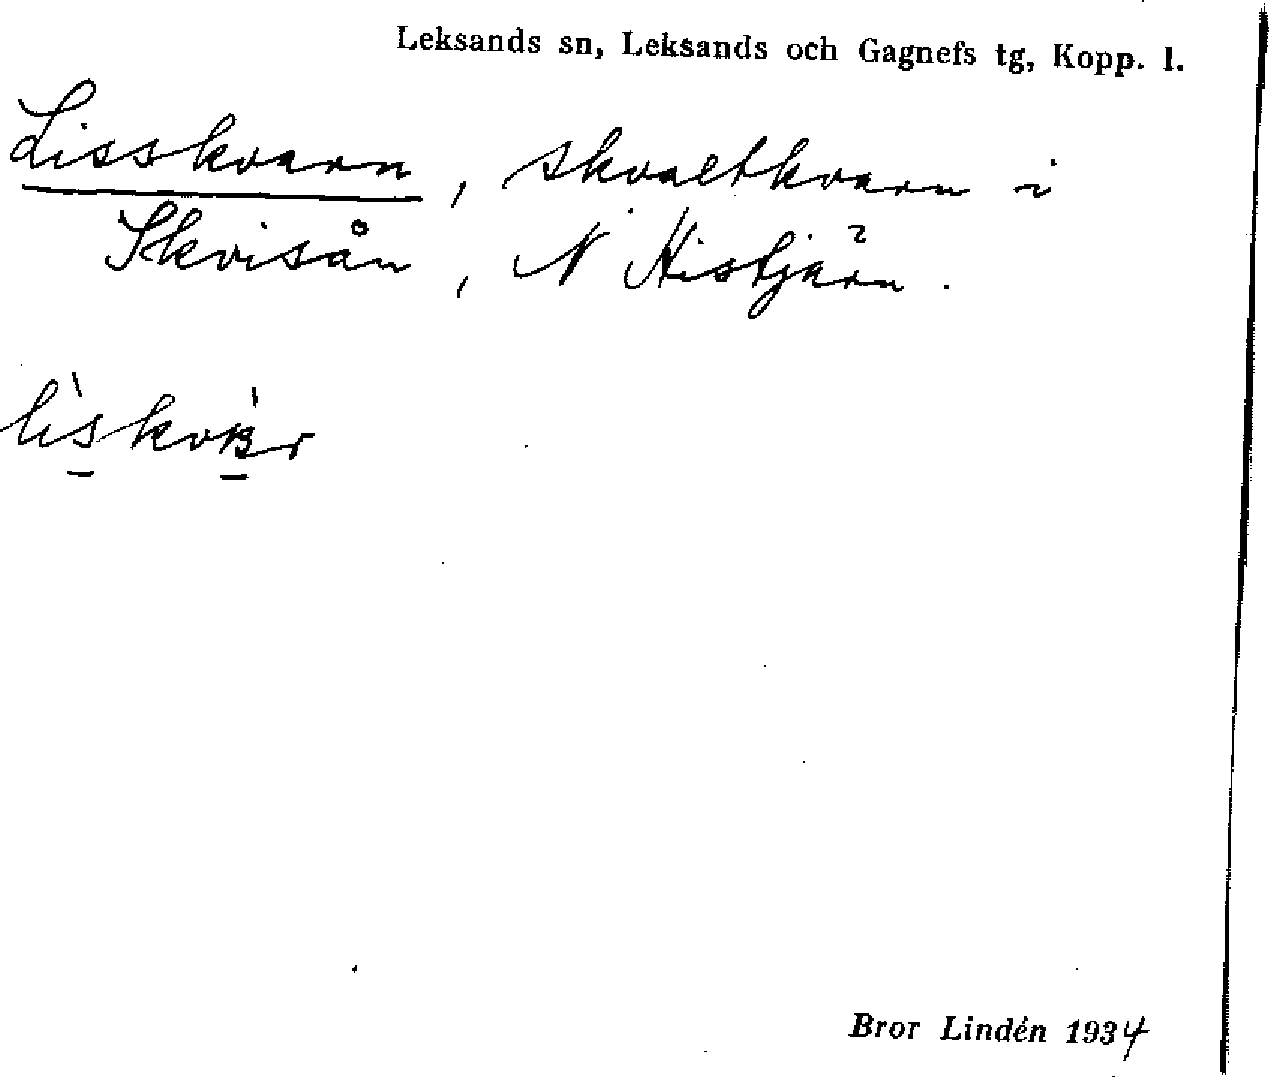 Leksands sn, Leksands och Gagnefs tg, Kopp. l.
Lisskvarn, skvaltkvarn i
Skvisån, N Histjärn.
Bror Lindén 1934